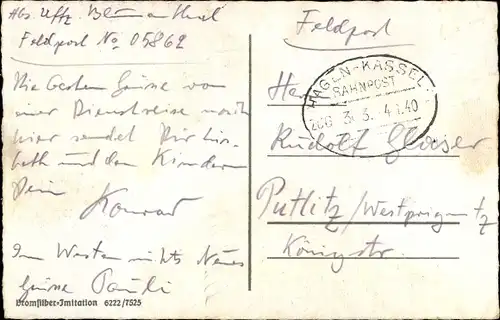 Abs. Uffz. Blumenthal
Feldpost No 05862
Die besten Grüsse von
einer Dienstreise nach
hier sendet Dir, Lis-
beth und den Kindern
Dein
Konrad
Im Westen nichts Neues
Grüsse Pauli
Bromsilber-Imitation 6222/7525
Feldpost
HAGEN-KASSEL
BAHNPOST
ZUG 3. 4.1.40
Herrn
Rudolf Glaser
Putlitz/Westprignitz
Königstr.